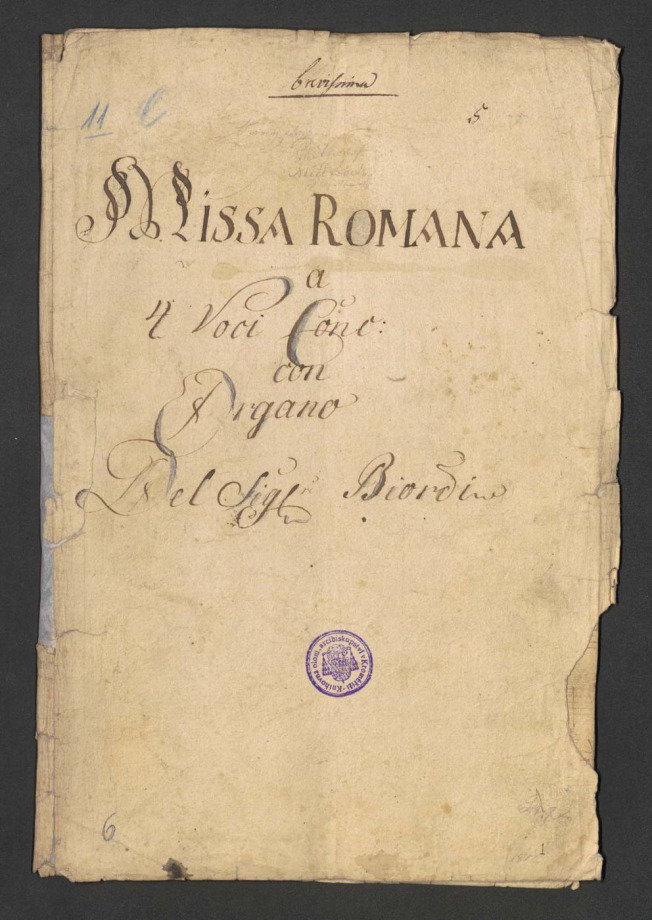 brevissima
11 C
5
MISSA ROMANA
a
4 Voci Conc:
con
Organo
Del Sigr Biordi
Knihovna olom. arcibiskupství v Kroměříži
6
1